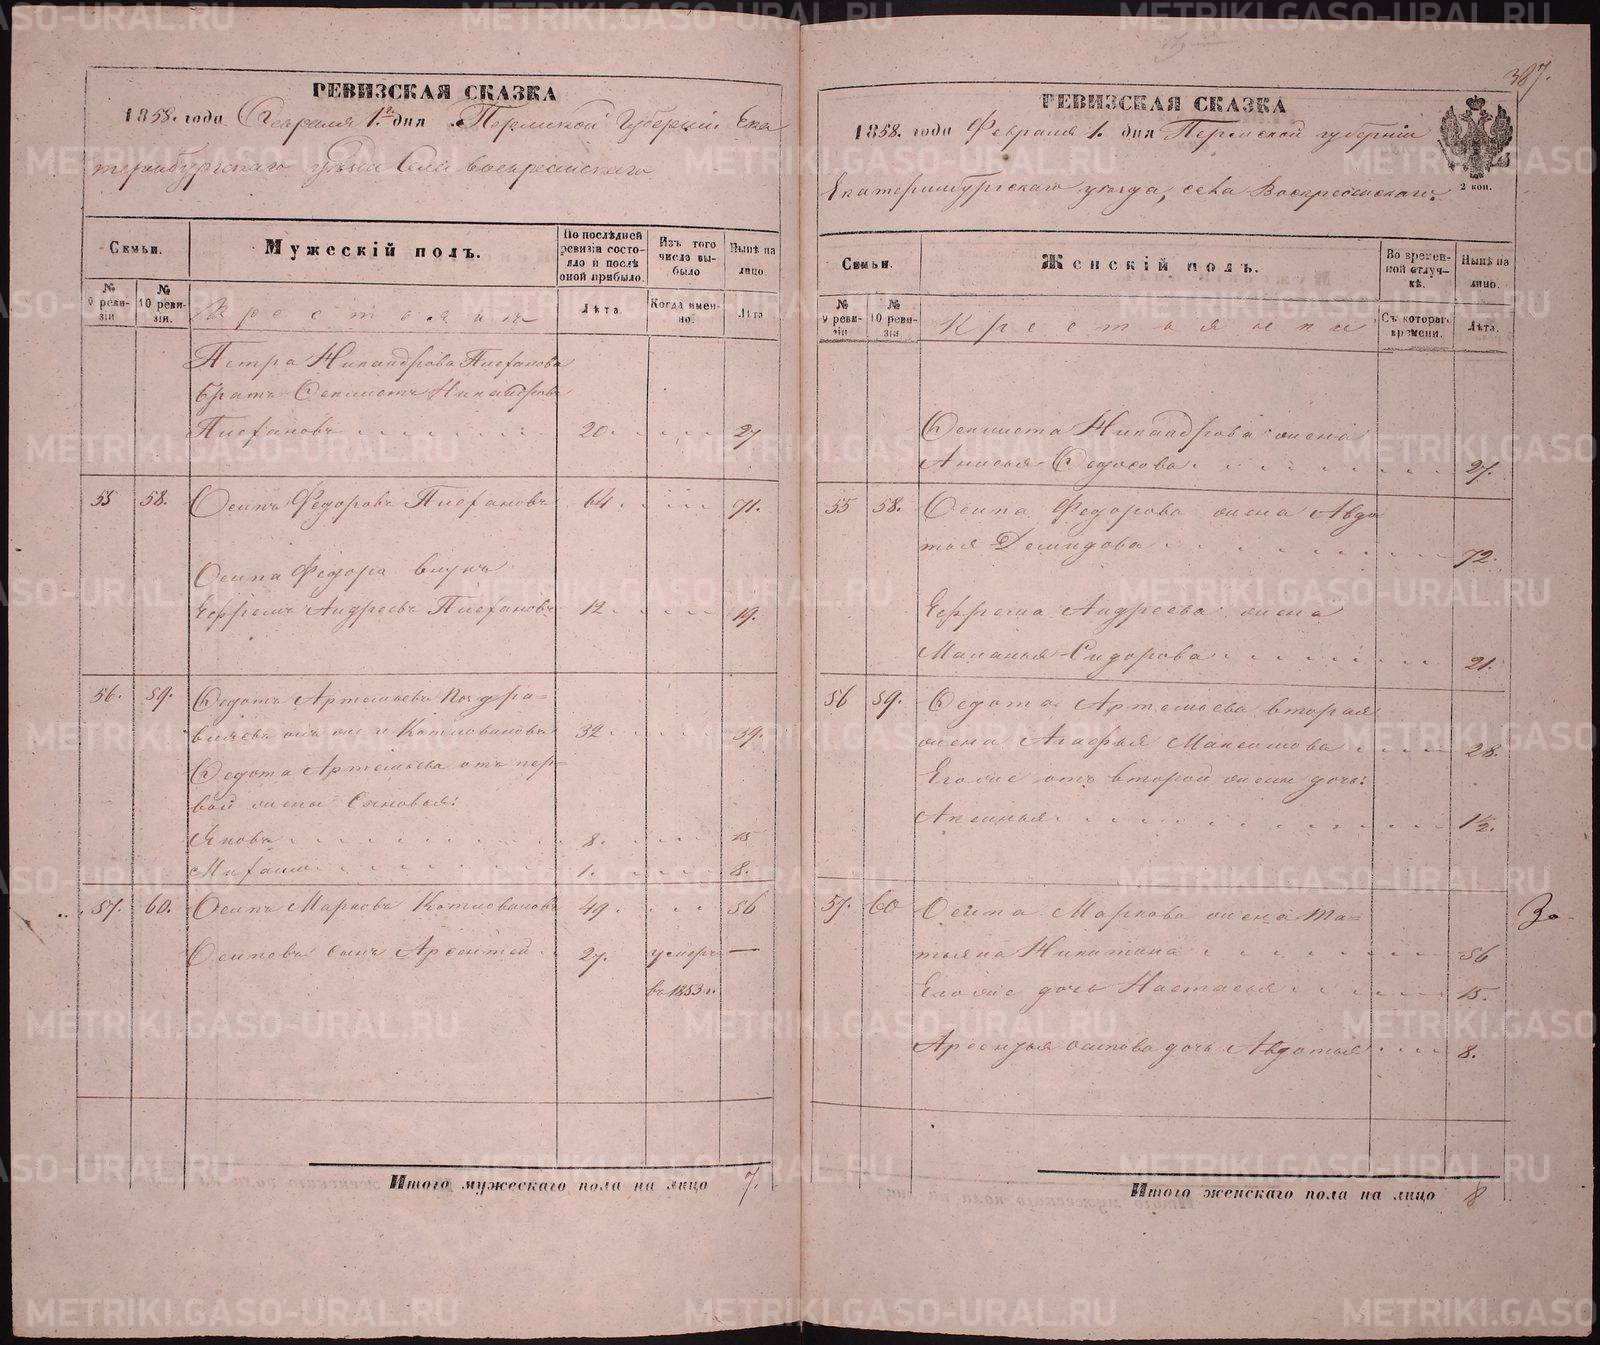 387.
РЕВИЗСКАЯ СКАЗКА
1858. года Февраля 1го дня Пермской Губернiи Ека
теринбургскаго уѣзда Села Воскресенскаго
Семьи.
Мужескiй полъ.
По послѣдней ревизiи состояло и послѣ оной прибыло.
Изъ того числа выбыло
Нынѣ на лицо.
№ 9 ревизiи
№ 10 ревизiи.
Крестьяне
Лѣта.
Когда именно.
Лѣта
Петра Никандрова
братъ Никандровъ
20. 27
55 58. Осипъ Федоровъ 64. 71.
Осипа Федора внукъ
Ефремъ Андреевъ 12. 19.
56. 59. Федотъ Артемьевъ
онъ же и Котловановъ 32. 39.
Федота Артемьева отъ пер-
вой жены Сыновья:
Яковъ 8. 15
1. 8.
57. 60. Осипъ Марковъ Котловановъ 49. 56
Осиповъ сынъ Арсентей 27. умеръ —
въ 1853 г.
Итого мужескаго пола на лицо 7.
РЕВИЗСКАЯ СКАЗКА
1858. года Февраля 1. дня Пермской губернiи
Екатеринбургскаго уѣзда, села Воскресенскаго.
2 коп.
Семьи.
Женскiй полъ.
Во временной отлучкѣ.
Нынѣ на лицо.
№ 9 ревизiи
№ 10 ревизiи
Крестьянки
Съ котораго времени.
Лѣта.
Никандрова жена
Анисья Федосова 27.
55 58. Осипа Федорова жена Авдо
тья Демидова 72.
Ефрема Андреева жена
Маланья Сидорова 21.
56 59. Федота Артемьева вторая
жена Агафья Максимова 28.
Его же отъ второй жены дочь:
Аксинья 1½.
57. 60 Осипа Маркова жена Та-
тьяна Никитина 56
Его же дочь Настасья 15.
Арсентья Осипова дочь Авдотья 8.
Итого женскаго пола на лицо 8
METRIKI.GASO-URAL.RU